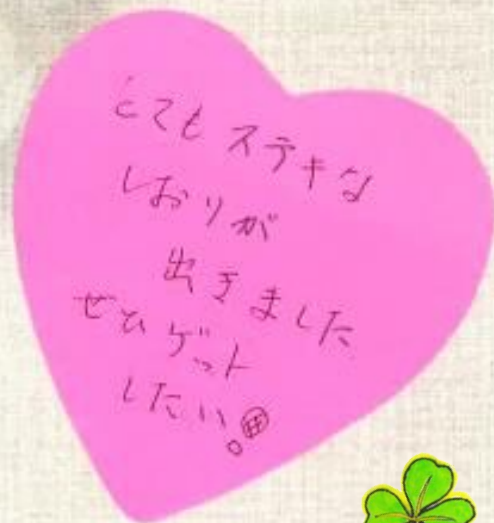 とてもステキな
しおりが
出きました
ぜひゲット
したい!